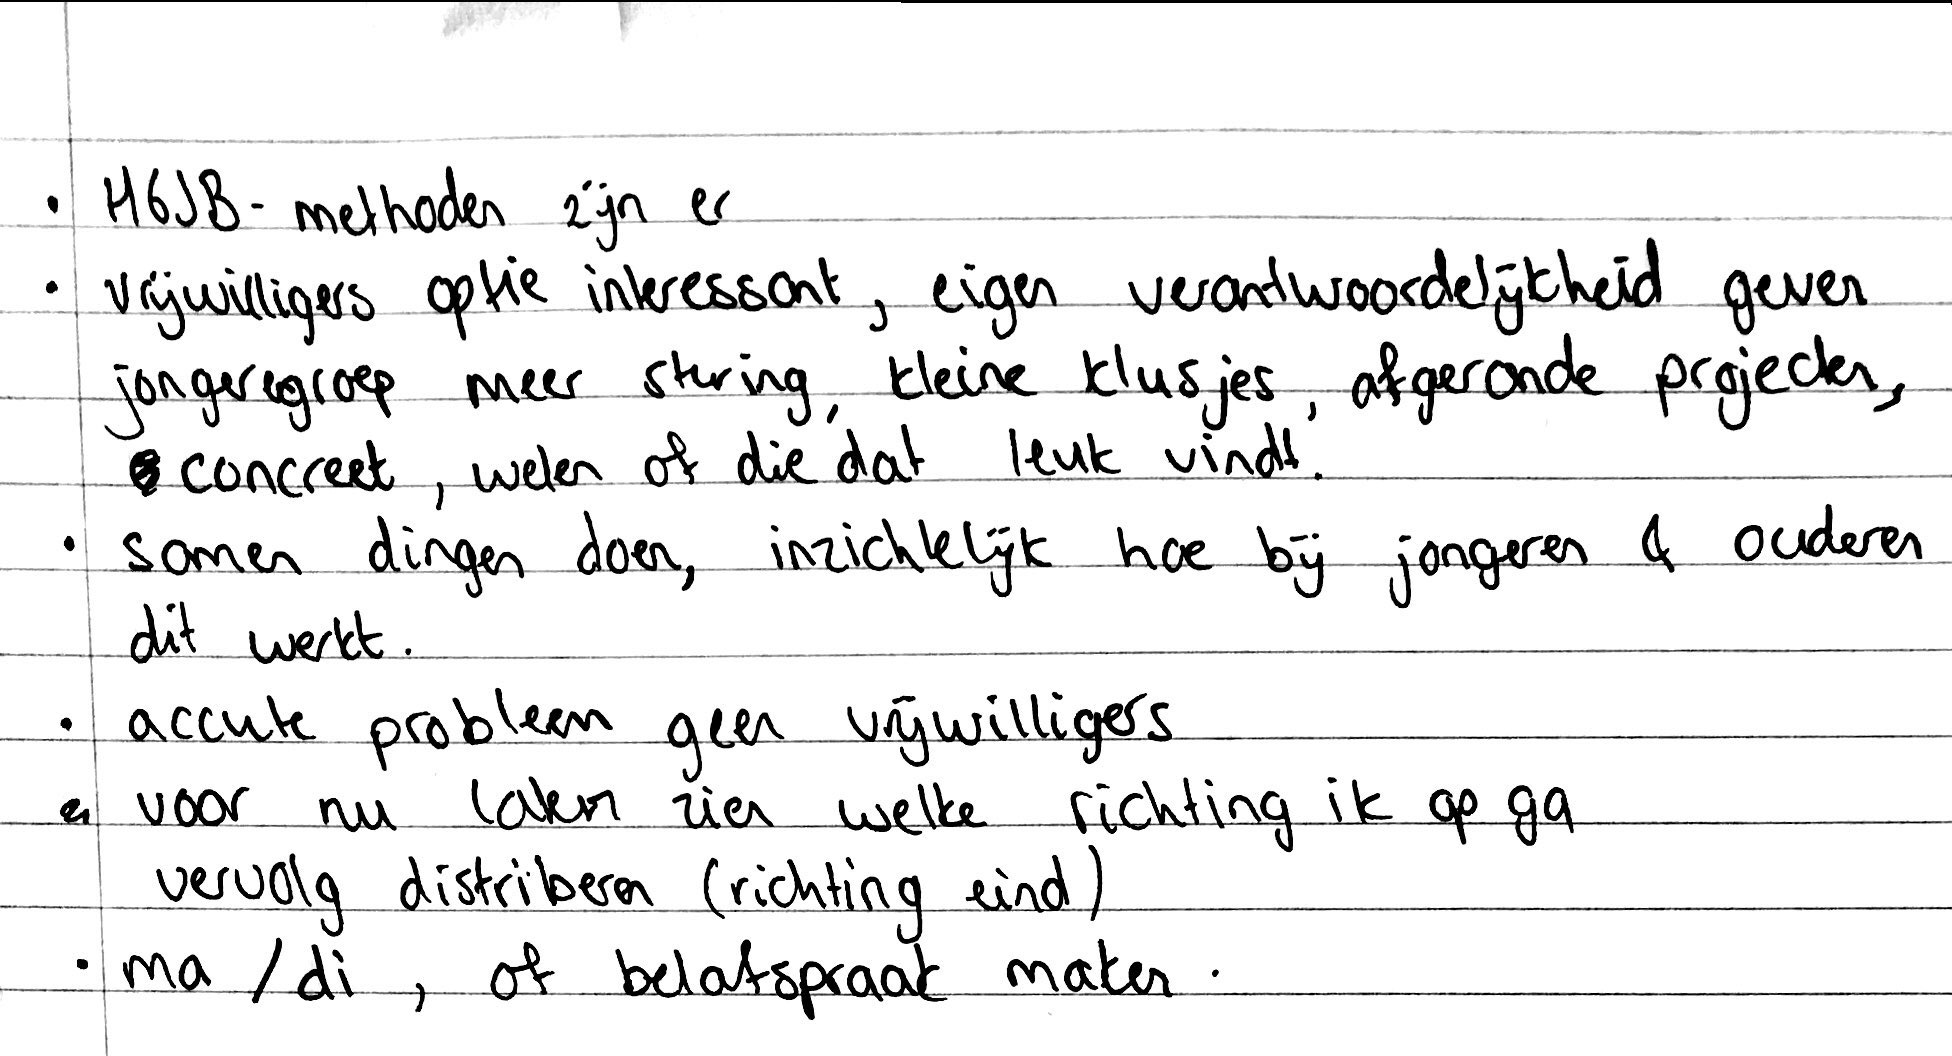 · HGJB - methoden zijn er
· vrijwilligers optie interessant, eigen verantwoordelijkheid geven
jongeregroep meer sturing, kleine klusjes, afgeronde projecten,
concreet, weten of die dat leuk vindt.
· samen dingen doen, inzichtelijk hoe bij jongeren & ouderen
dit werkt.
· accute probleem geen vrijwilligers
voor nu laten zien welke richting ik op ga
vervolg distriberen (richting eind)
· ma / di , of belafspraak maken.